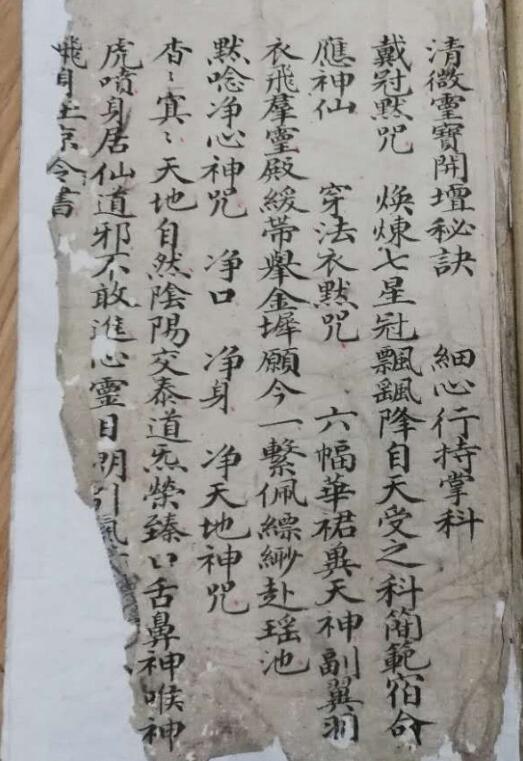 清微靈寶開壇秘訣 細心行持掌科
戴冠默咒 煥煉七星冠飄颻降自天受之科簡範宿命
應神仙 穿法衣默咒 六幅華裙異天神副翼羽
衣飛羣靈殿緩帶舉金墀願今一繫佩縹緲赴瑶池
默唸净心神咒 净口 净身 净天地神咒
杳〻冥〻天地自然陰陽交泰道炁榮臻口舌鼻神喉神
虎噴身居仙道邪不敢進心靈目明引氣
飛身上京令書